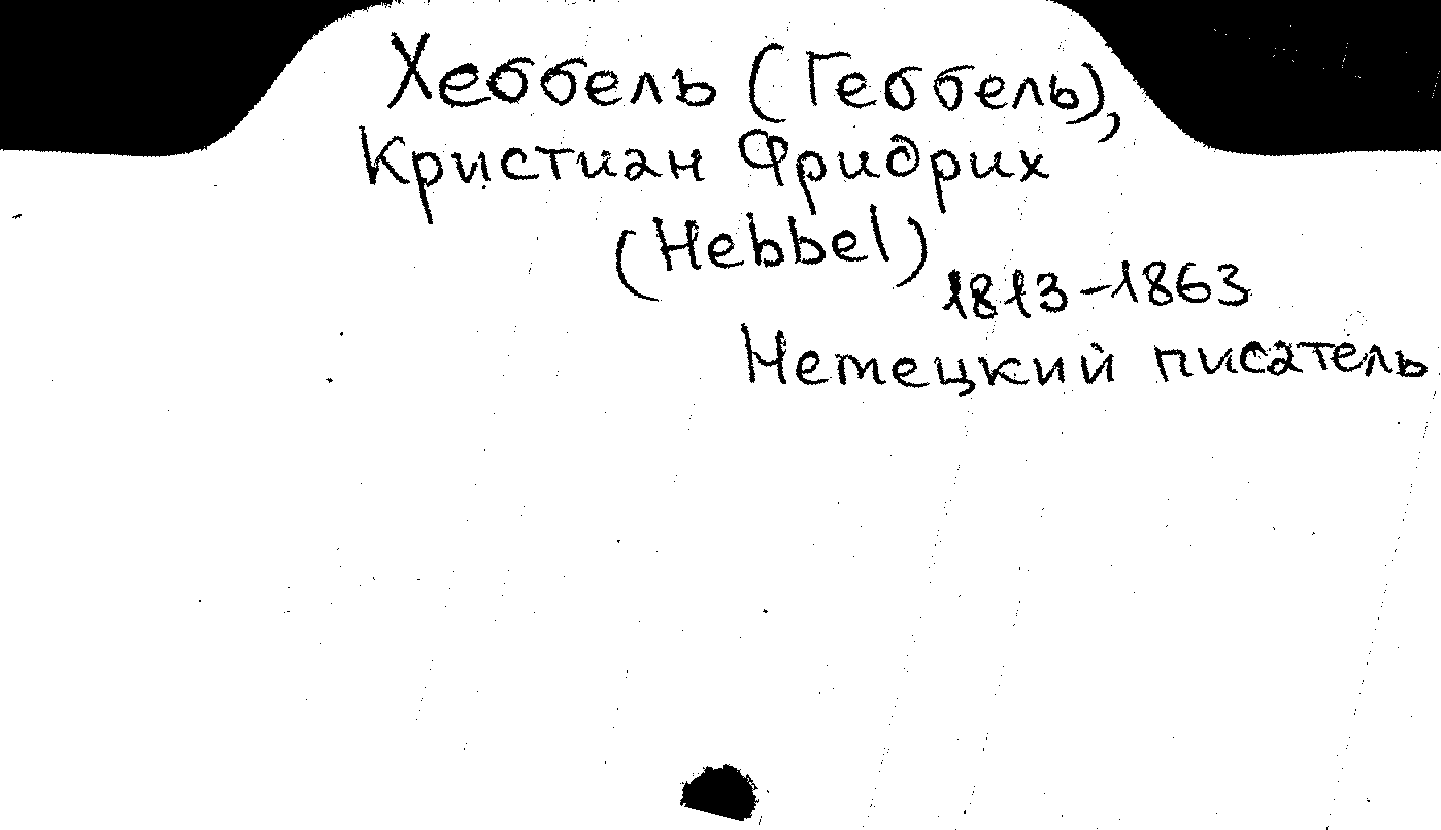 Хеббель (Геббель),
Кристиан Фридрих
(Hebbel)
1813-1863
Немецкий писатель